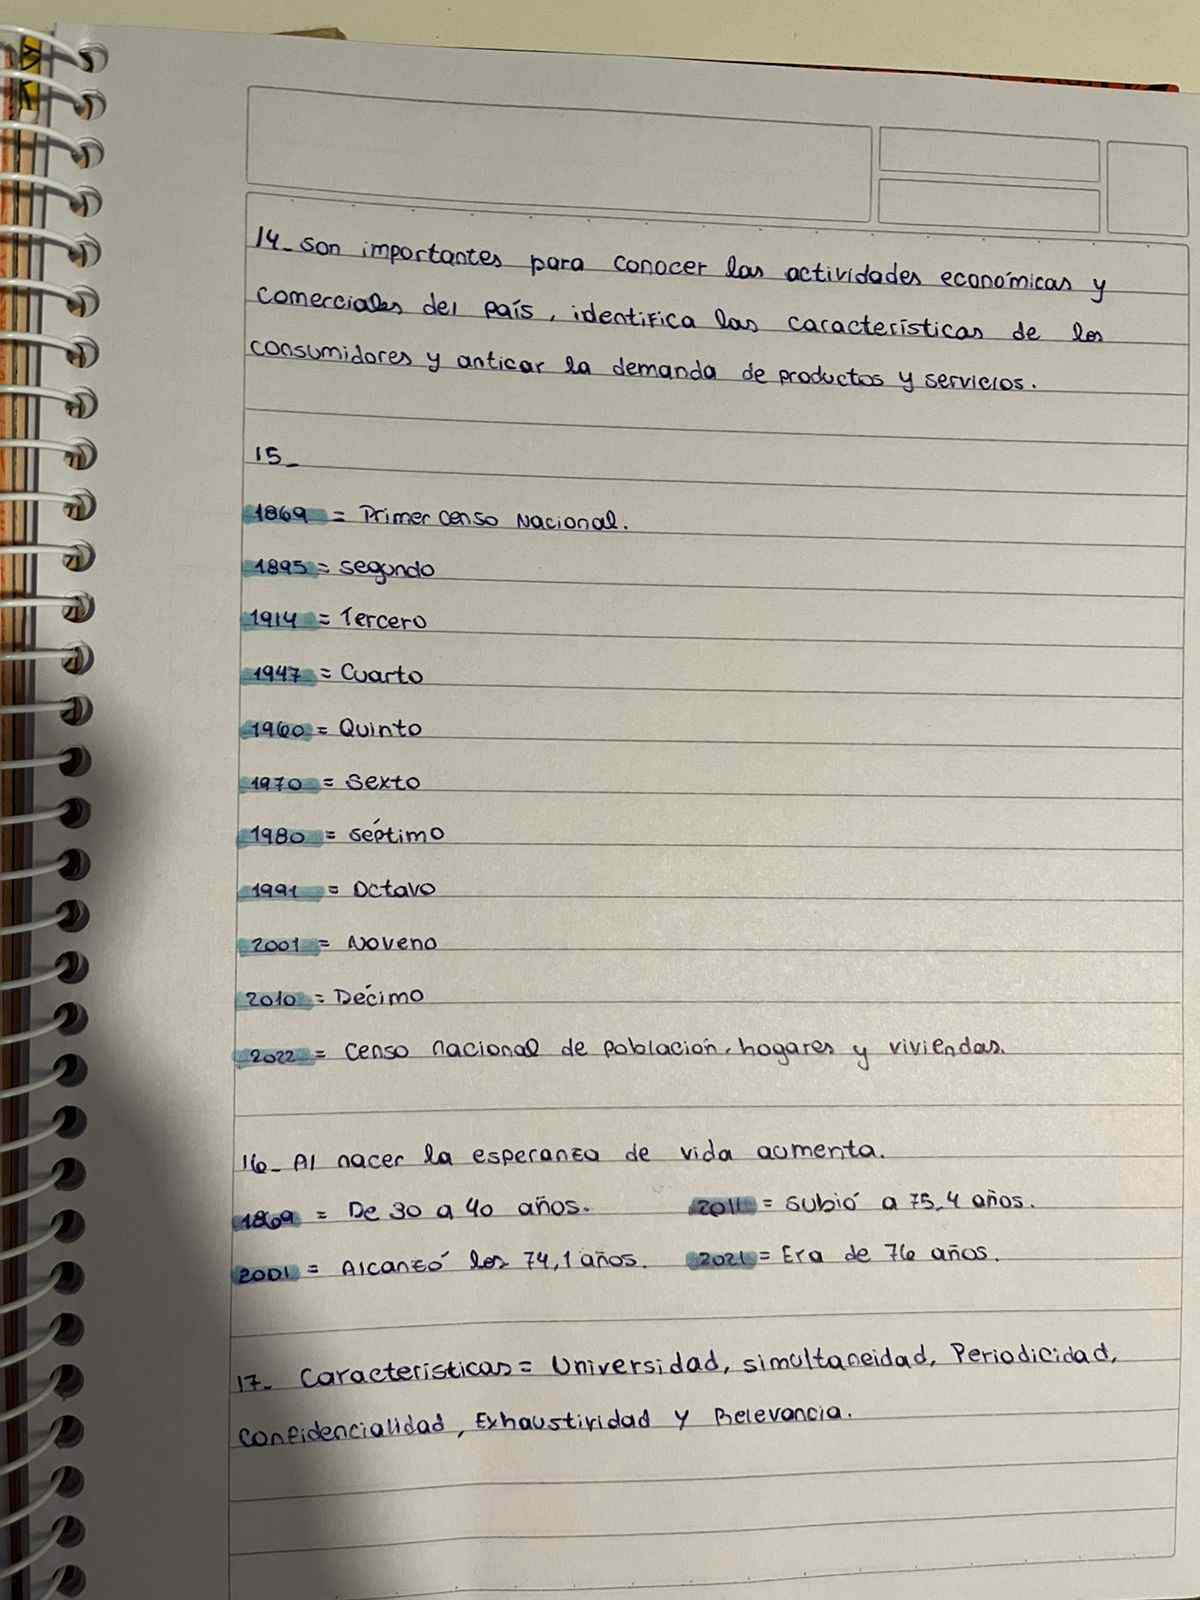 14- Son importantes para conocer las actividades económicas y
comerciales del país, identifica las características de los
consumidores y anticar la demanda de productos y servicios.
15-
1869 = Primer censo Nacional.
1895 = segundo
1914 = Tercero
1947 = Cuarto
1960 = Quinto
1970 = Sexto
1980 = séptimo
1991 = Octavo
2001 = Noveno
2010 = Décimo
2022 = censo nacional de población, hogares y viviendas.
16- Al nacer la esperanza de vida aumenta.
1869 = De 30 a 40 años. 2011 = subió a 75,4 años.
2001 = Alcanzó los 74,1 años. 2021 = Era de 76 años.
17- Características = Universidad, simultaneidad, Periodicidad,
Confidencialidad, Exhaustividad y Relevancia.